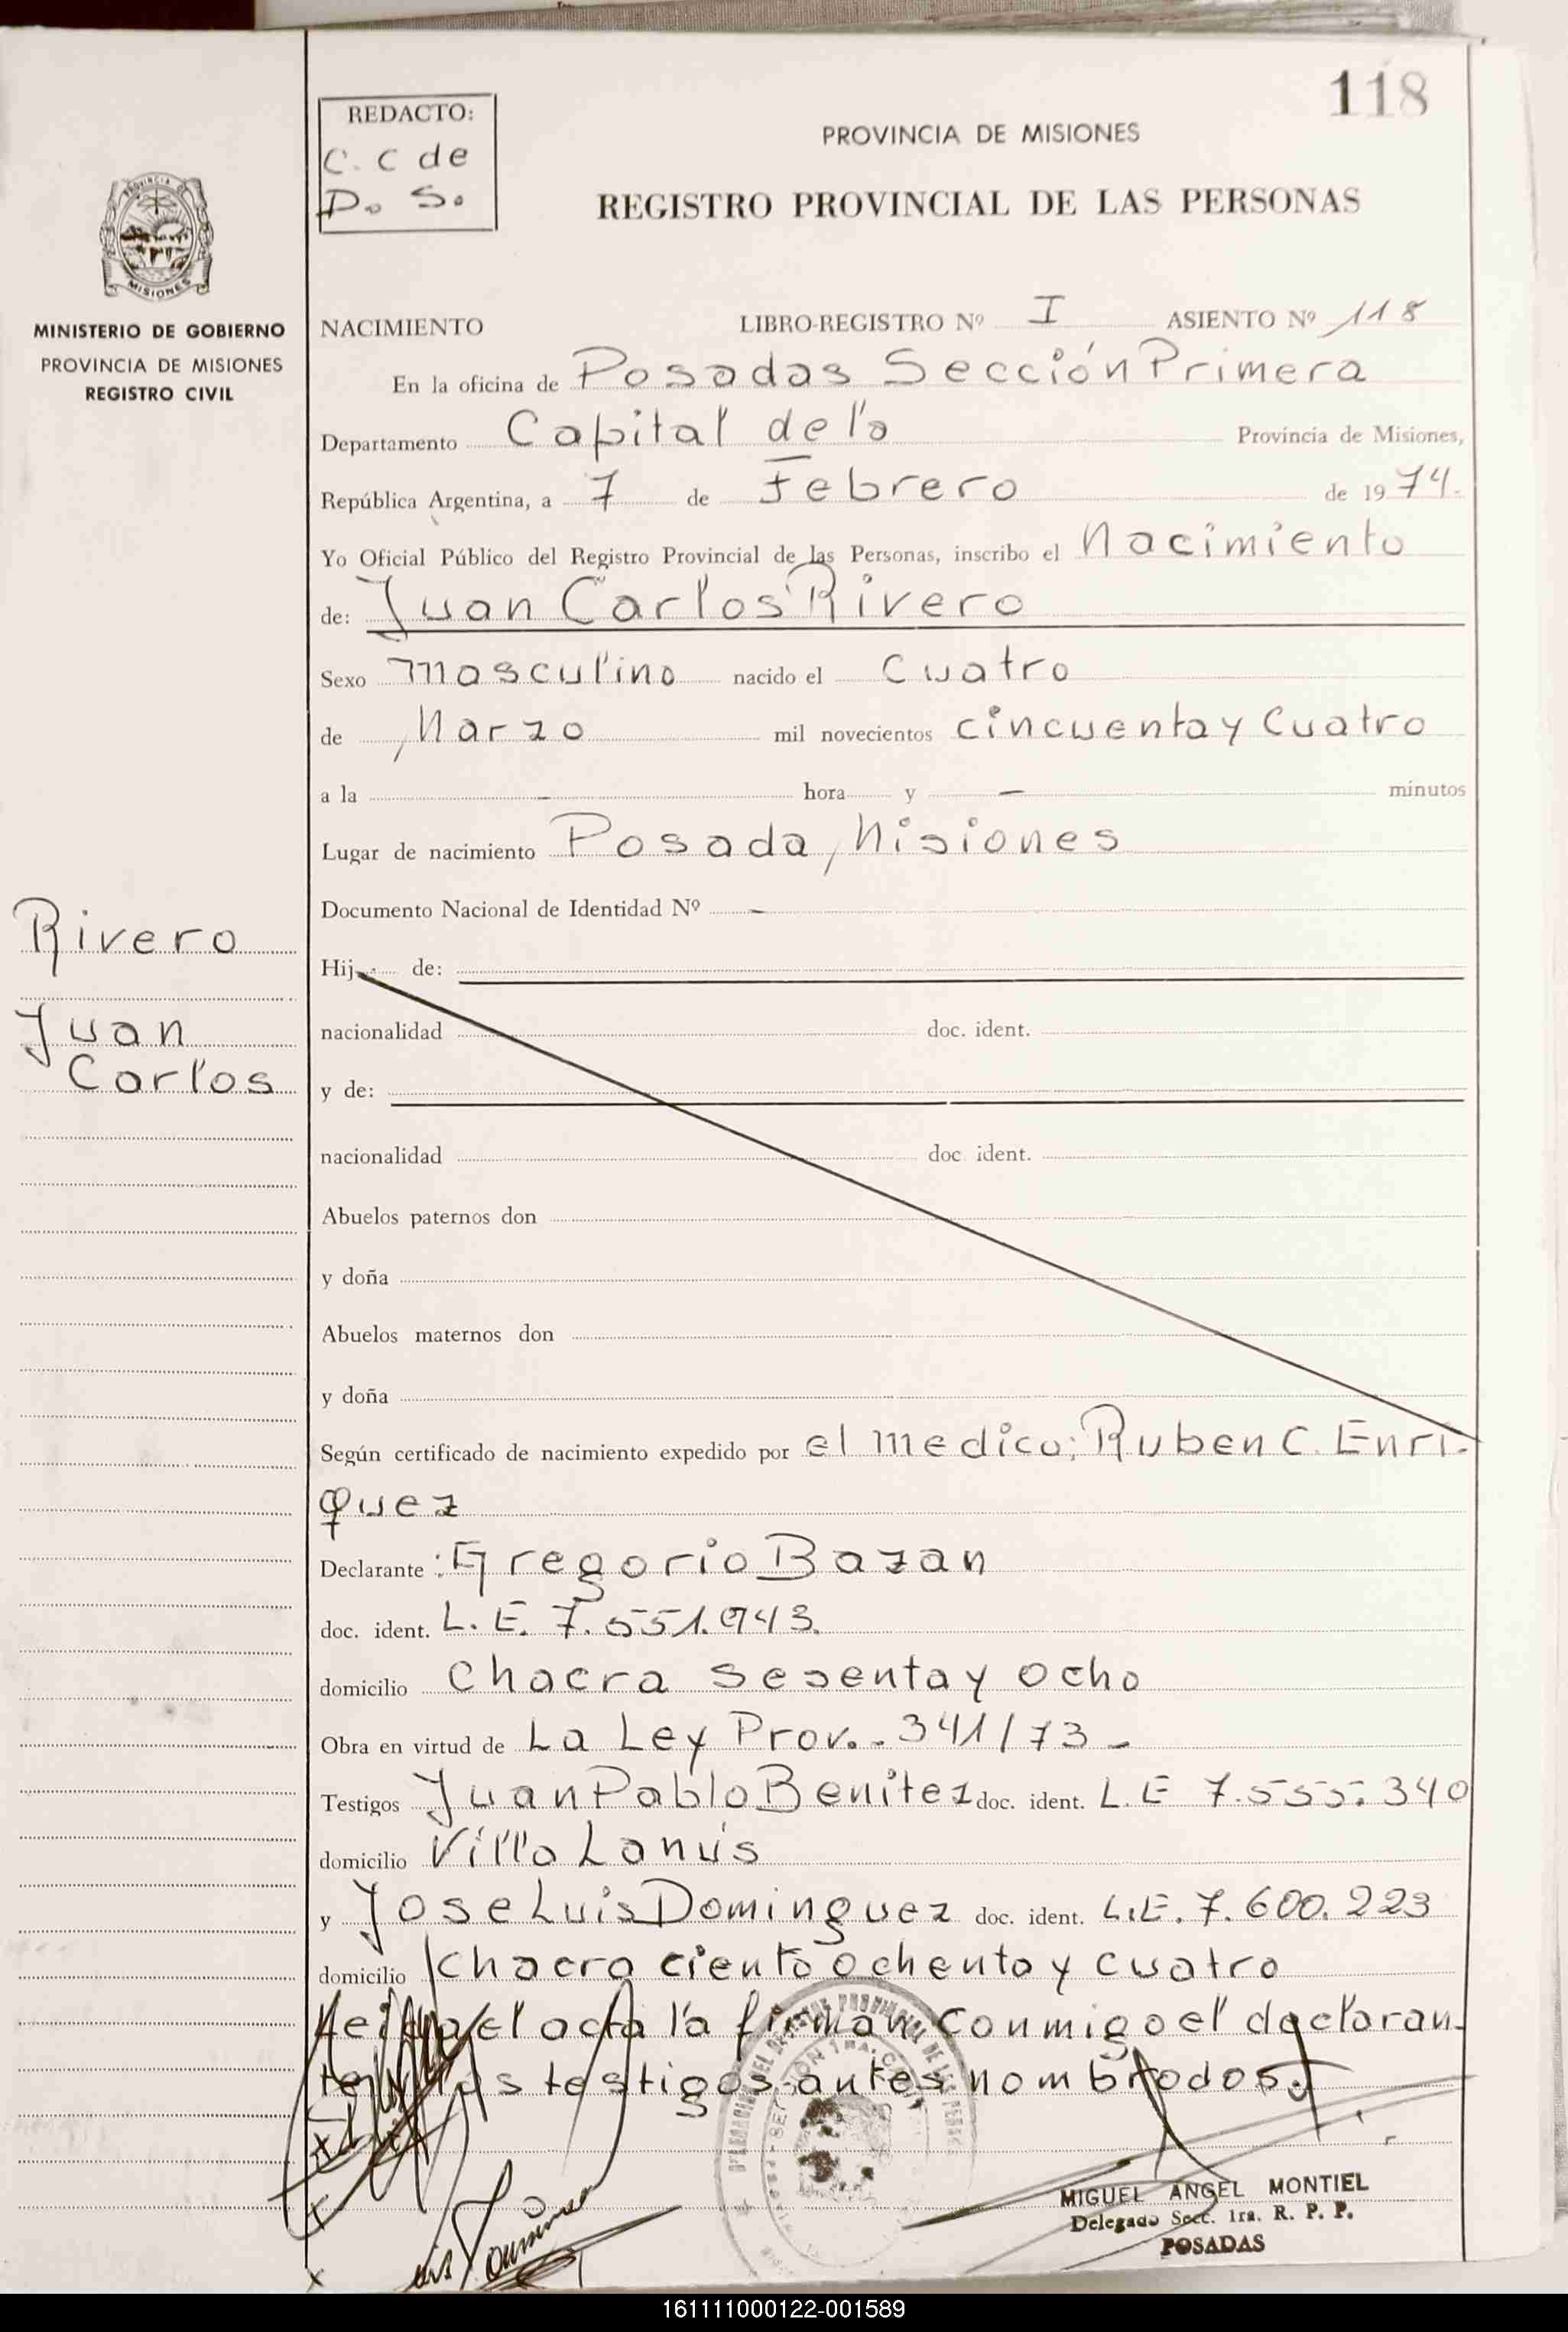 118
REDACTO:
C. C de
D. S.
PROVINCIA DE MISIONES
REGISTRO PROVINCIAL DE LAS PERSONAS
MISIONES
MINISTERIO DE GOBIERNO
PROVINCIA DE MISIONES
REGISTRO CIVIL
NACIMIENTO LIBRO-REGISTRO Nº I ASIENTO Nº 118
En la oficina de Posadas Sección Primera
Departamento Capital de la Provincia de Misiones,
República Argentina, a 7 de Febrero de 1974.
Yo Oficial Público del Registro Provincial de las Personas, inscribo el Nacimiento
de: Juan Carlos Rivero
Sexo Masculino nacido el Cuatro
de Marzo mil novecientos cincuenta y Cuatro
a la - hora y - minutos
Lugar de nacimiento Posada, Misiones
Documento Nacional de Identidad Nº -
Rivero
Juan
Carlos
Hij de:
nacionalidad doc. ident.
y de:
nacionalidad doc. ident.
Abuelos paternos don
y doña
Abuelos maternos don
y doña
Según certificado de nacimiento expedido por el Medico; Ruben C. Enri-
quez
Declarante : Gregorio Bazan
doc. ident. L. E. 7.551.943.
domicilio Chacra sesenta y ocho
Obra en virtud de La Ley Prov.. 341/73 -
Testigos Juan Pablo Benitez doc. ident. L.E 7.555.340
domicilio Villa Lanús
y Jose Luis Dominguez doc. ident. L.E. 7.600.223
domicilio Chacra ciento ochenta y cuatro
Leida el acta la firman conmigo el declaran-
te y los testigos antes nombrados.
MIGUEL ANGEL MONTIEL
Delegado Secc. 1ra. R. P. P.
POSADAS
161111000122-001589